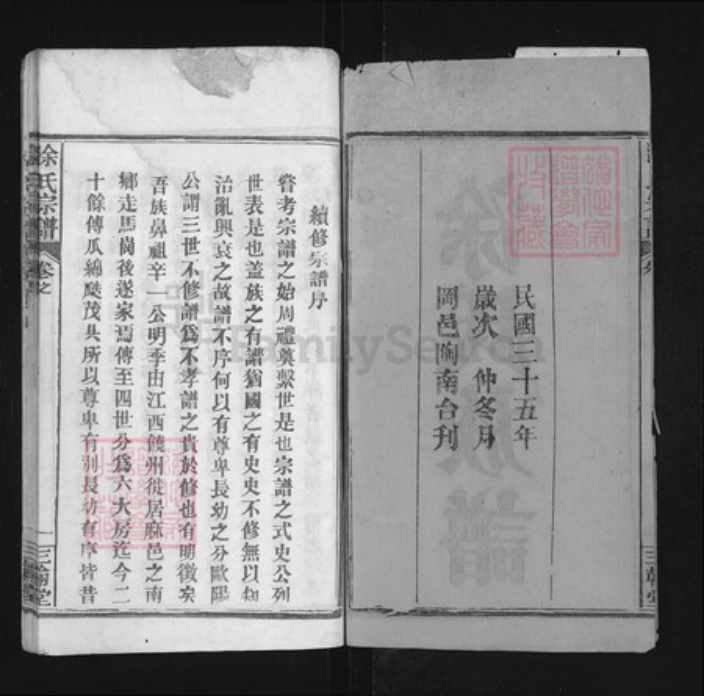 民國三十五年
歲次 仲冬月
岡邑陶南台刊
三翰堂
FamilySearch
續修宗譜序
嘗考宗譜之始周禮奠繫世是也宗譜之式史公列
世表是也蓋族之有譜猶國之有史史不修無以知
治亂興衰之故譜不序何以有尊卑長幼之分歐陽
公謂三世不修譜爲不孝譜之貴於修也有明徵矣
吾族鼻祖辛一公明季由江西饒州徙居麻邑之南
鄉走馬崗後遂家焉傳至四世分爲六大房迄今二
十餘傳瓜綿瓞茂具所以尊卑有別長幼有序皆昔
徐氏宗譜
卷之
一
三翰堂